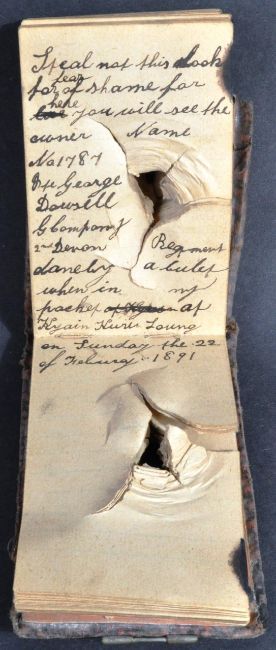 Steal not this Book
for fear of shame for
here you will see the
owner Name
No 1787
Pte George
Dowsell
G Company
2nd Devon Regment
done by a bulet
when in my
pocket at
Kyain Kurii Loung
on Sunday the 22
of Feburay 1891